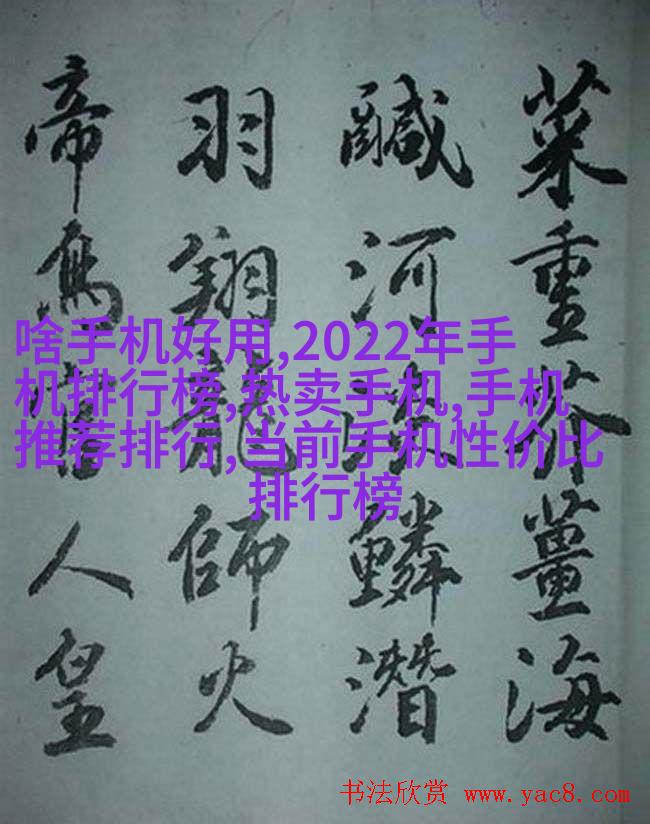 菜重芥薑海
鹹河淡鱗潛
羽翔龍師火
帝鳥官人皇
啥手机好用,2022年手
机排行榜,热卖手机,手机
推荐排行,当前手机性价比
排行榜
书法欣赏 www.yac8.com